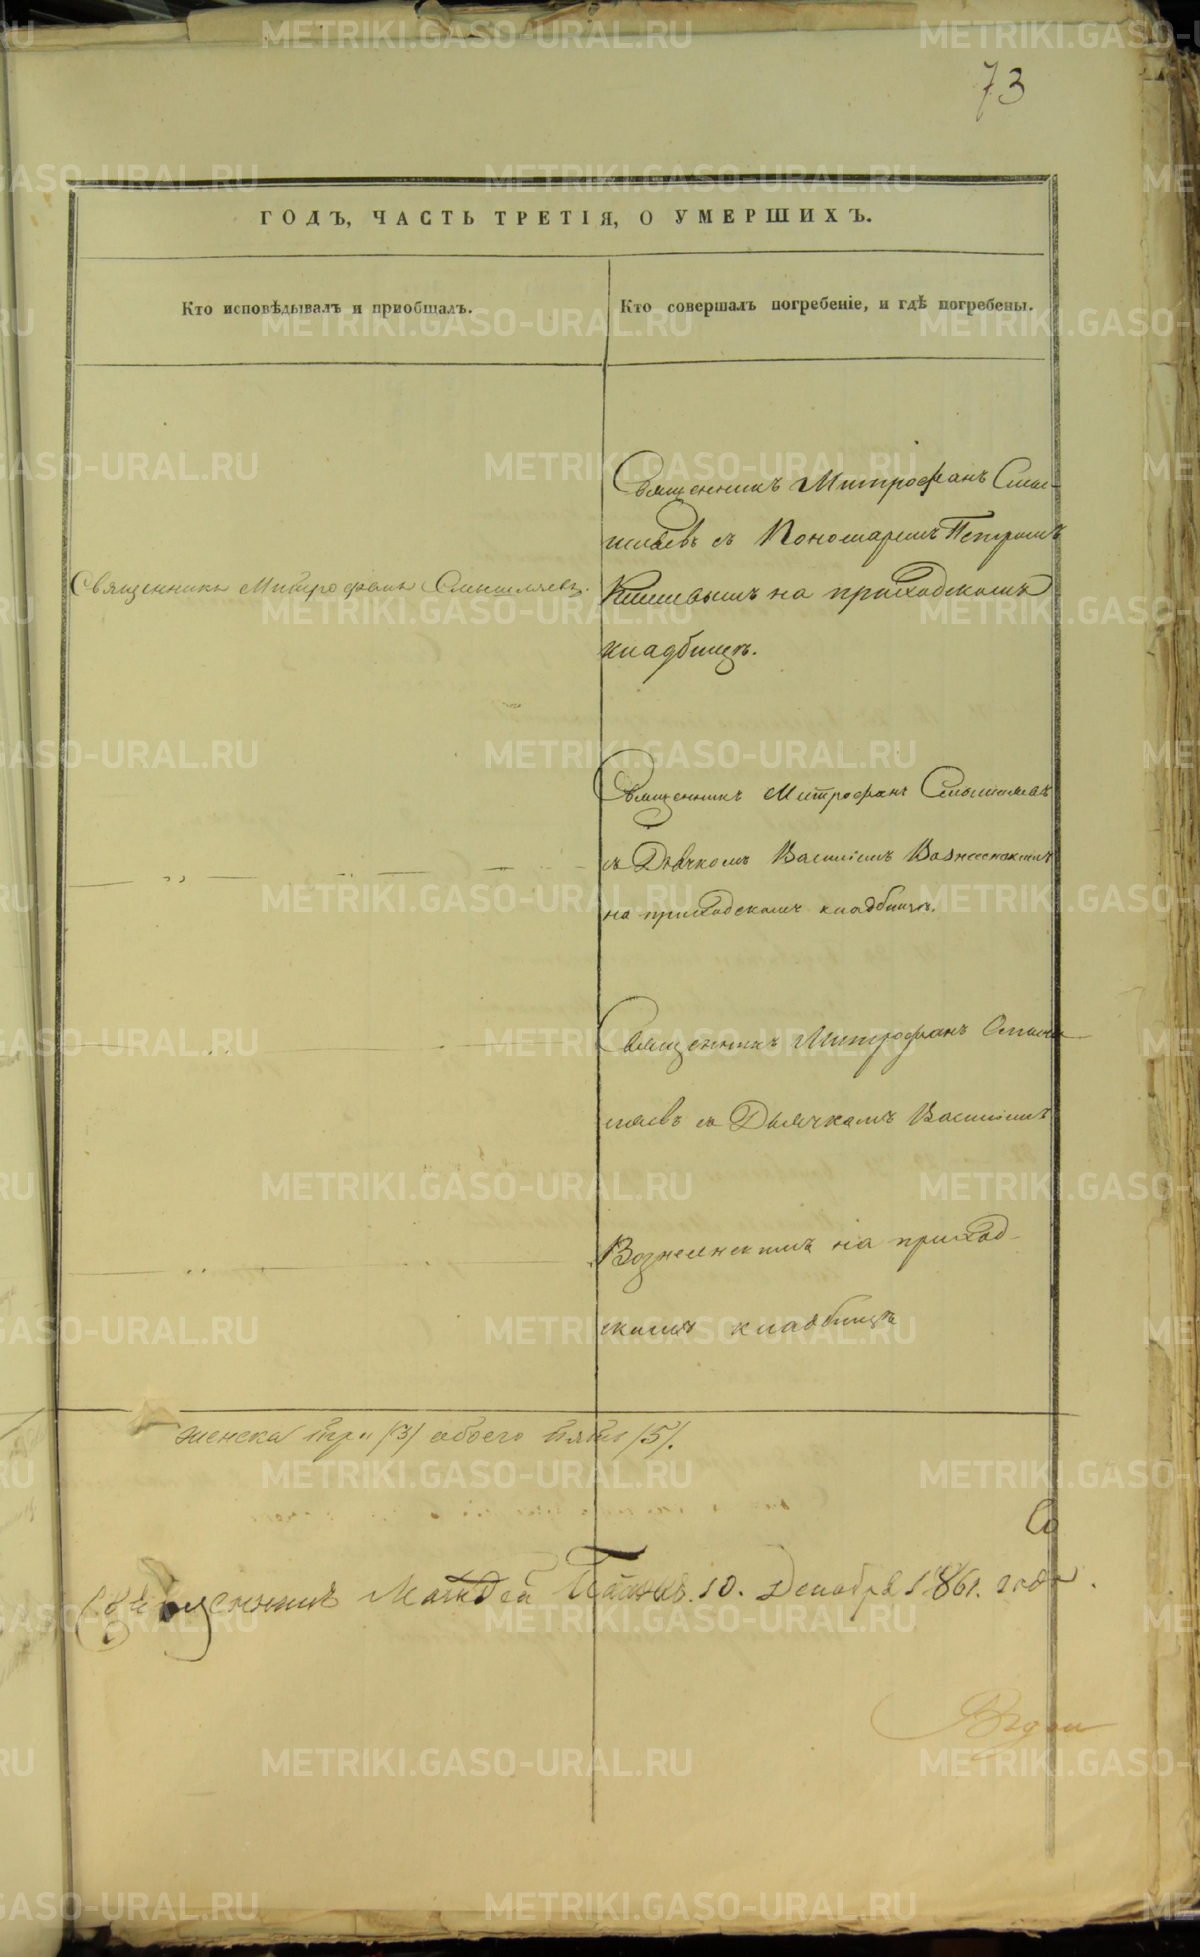 73
ГОДЪ, ЧАСТЬ ТРЕТІЯ, О УМЕРШИХЪ.
Кто исповѣдывалъ и пріобщалъ.
Кто совершалъ погребеніе, и гдѣ погребены.
Священникъ Митрофанъ Смышляевъ.
Священникъ Митрофанъ Смы-
шляевъ съ Пономаремъ Петромъ
на приходскомъ
кладбищѣ.
Священникъ Митрофанъ Смышляевъ
съ Дьячкомъ Василіемъ Вознесенскимъ
на приходскомъ кладбищѣ.
Священникъ Митрофанъ Смыш
ляевъ съ Дьячкомъ Василіемъ
Вознесенскимъ на приход-
скомъ кладбищѣ
женска три /3/ обоего пять /5/.
Со
Священникъ Матѳей 10. Декабря 1861. года.
METRIKI.GASO-URAL.RU